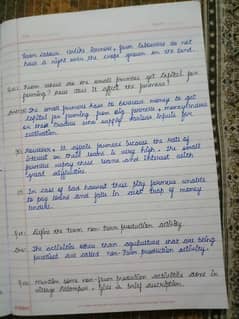 Farm labour unlike farmers, farm labourers do not
have a right over the crops grown on the land.
Q: From where do the small farmers get capital for
farming? How does it affect the farmers?
The small farmers have to borrow money to get
capital for farming from big farmers, moneylenders
or the traders who supply various inputs for
cultivation.
However, it affects farmers because the rate of
interest on such loans is very high. The small
farmers repay these loans and interest with
great difficulties.
In case of bad harvest these poor farmers unable
to pay loans and falls in debt trap of money
lender.
Q: Define the term non farm production activity.
Ans: The activities other than agriculture that are being
practised are called non-farm production activity.
Q: Mention some non-farm production activities done in
village Palampur. Give a brief description.